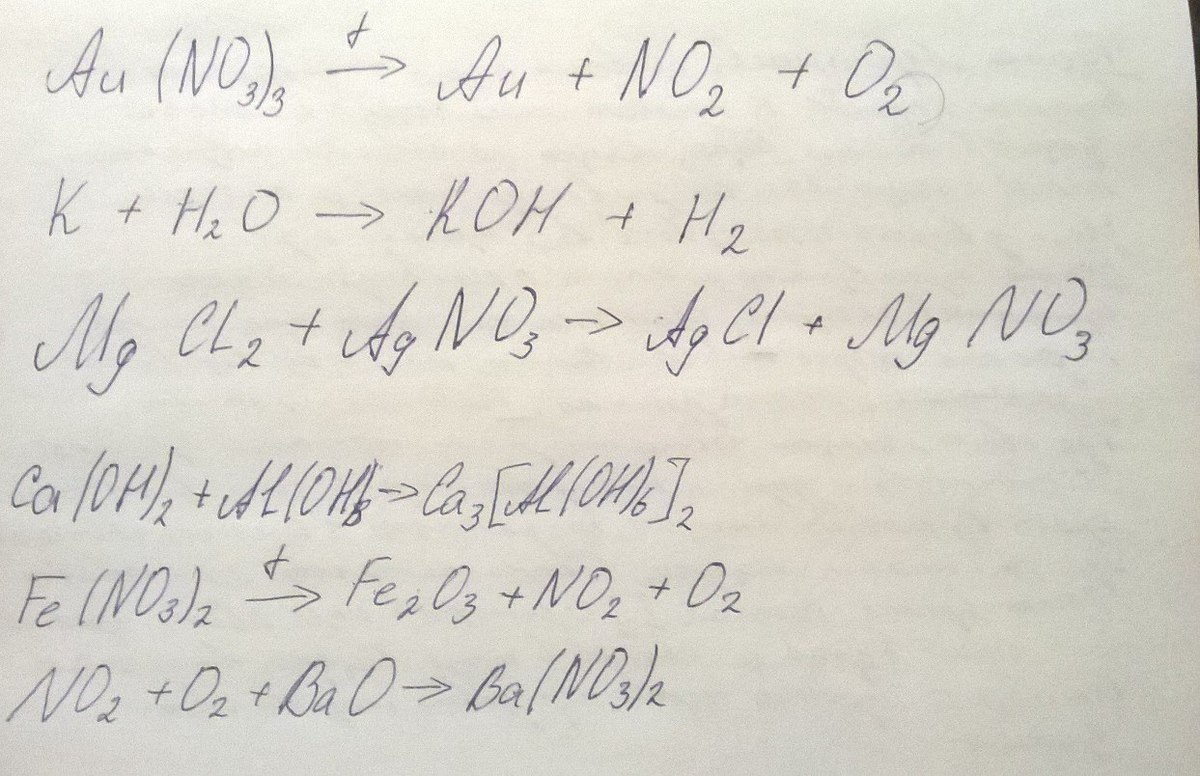 Au (NO₃)₃ →ᵗ Au + NO₂ + O₂
K + H₂O → KOH + H₂
Mg Cl₂ + Ag NO₃ → AgCl + Mg NO₃
Ca(OH)₂ + Al(OH)₃ → Ca₃[Al(OH)₆]₂
Fe(NO₃)₂ →ᵗ Fe₂O₃ + NO₂ + O₂
NO₂ + O₂ + BaO → Ba(NO₃)₂